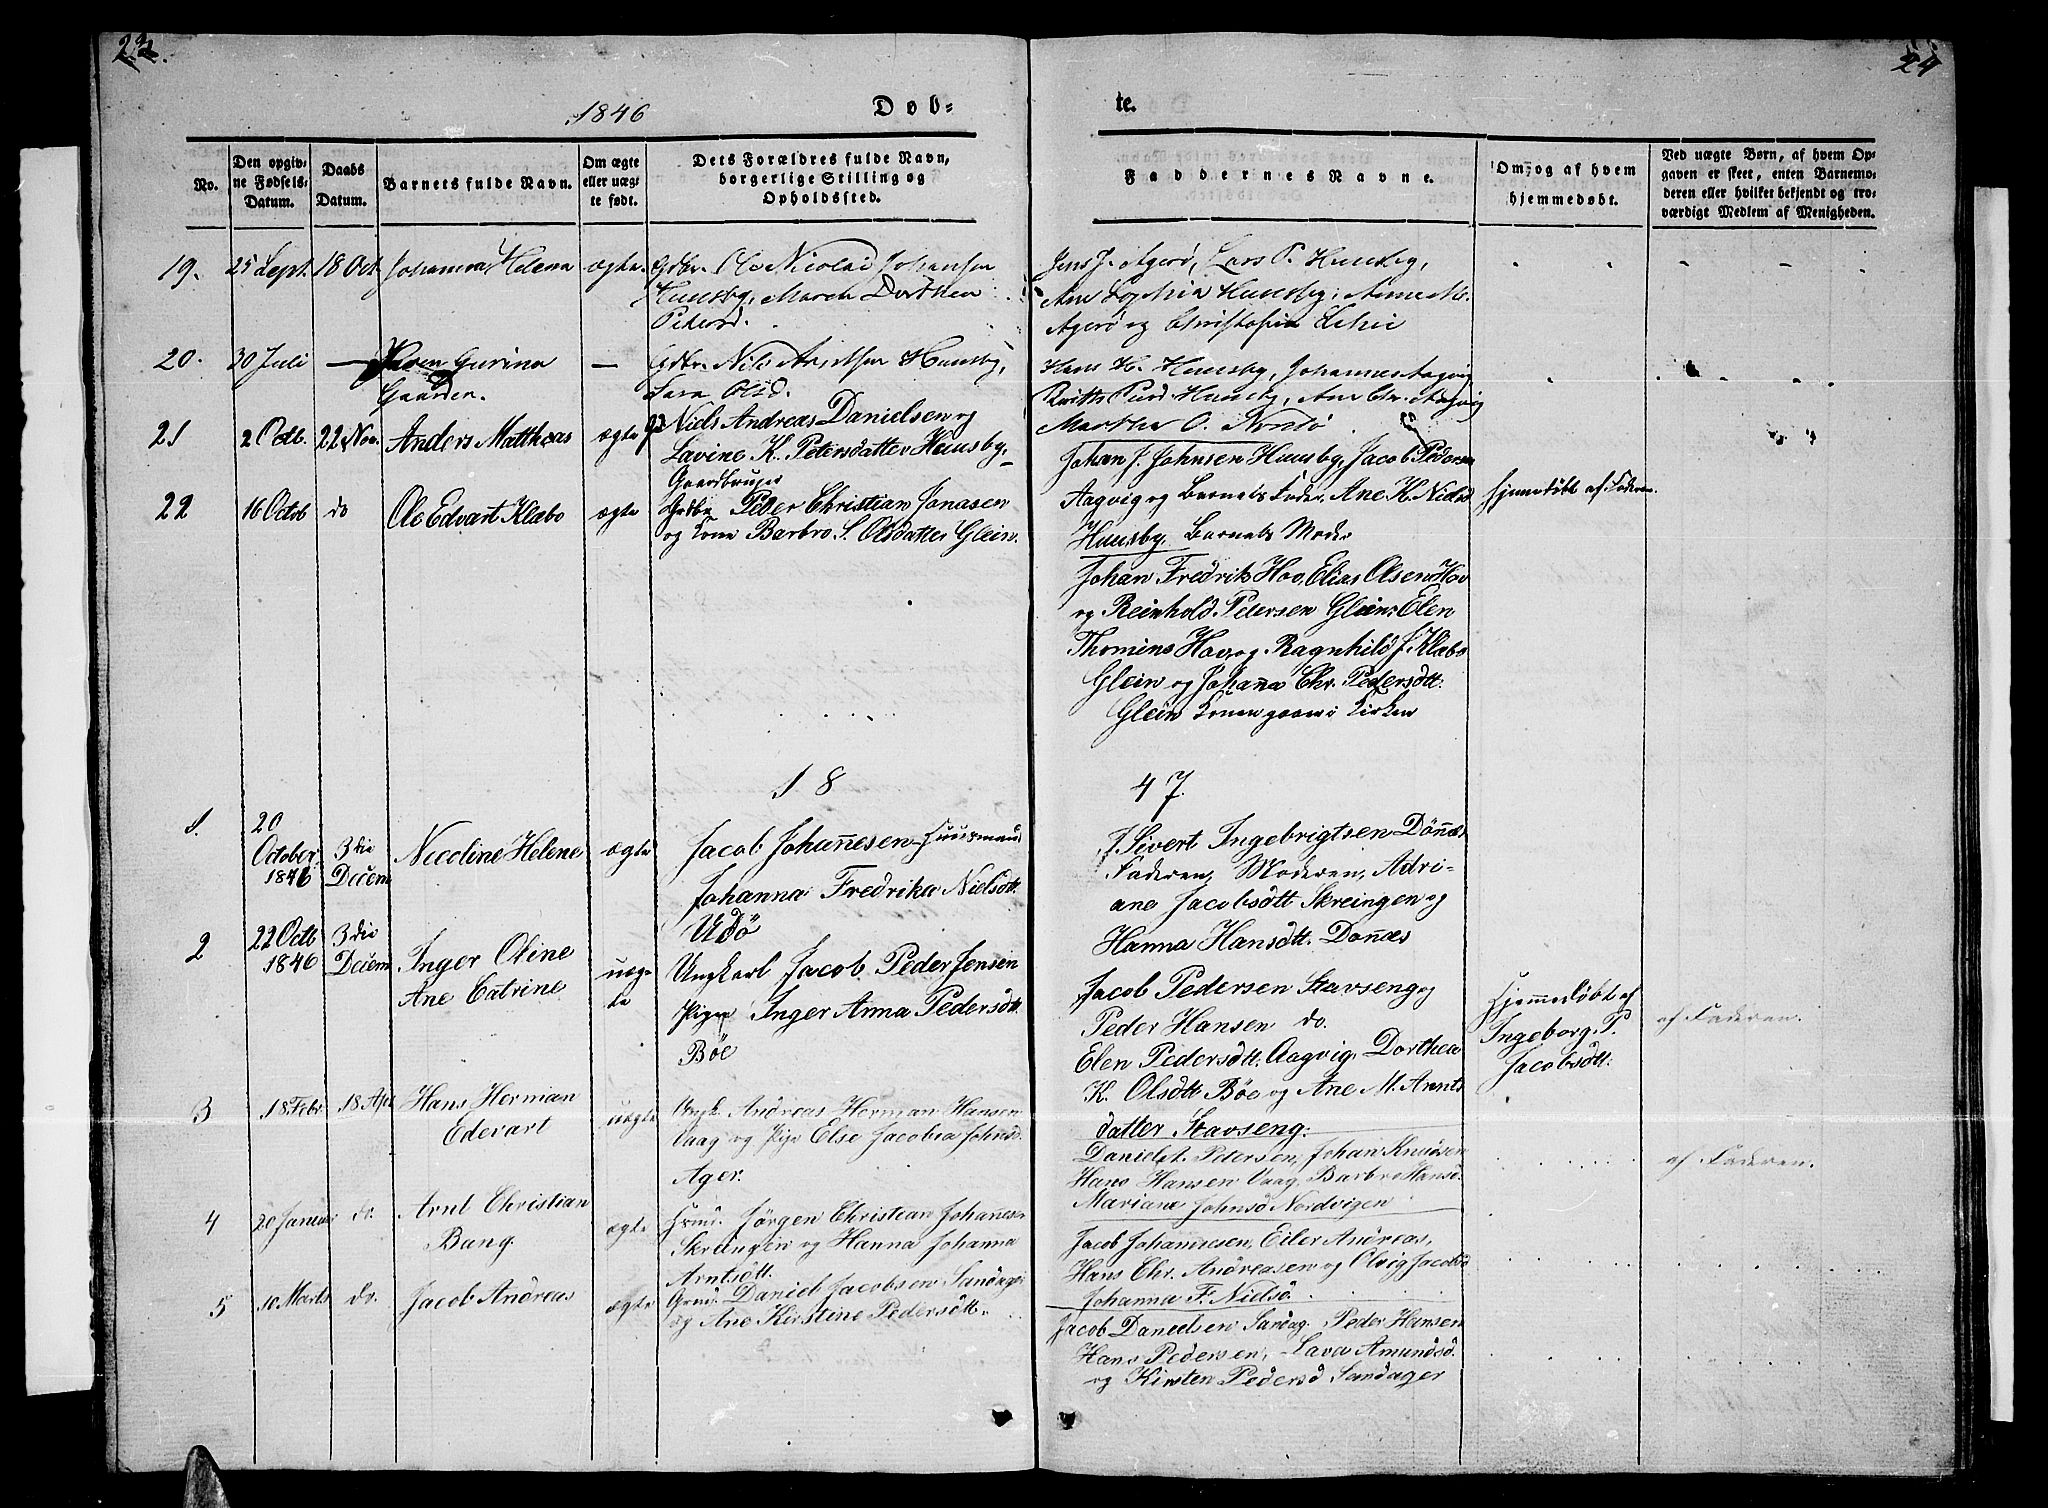 23.
24
1846
Dob-
te.
No.
Den opgiv-
ne Fødsels-
Datum.
Daabs
Datum.
Barnets fulde Navn.
Om ægte
eller uæg-
te født.
Dets Forældres fulde Navn,
borgerlige Stilling og
Opholdssted.
Faddernes Navne.
Om, og af hvem
hjemmedøbt.
Ved uægte Børn, af hvem Op-
gaven er skeet, enten Barnemo-
deren eller hvilket bekjendt og tro-
værdigt Medlem af Menigheden.
19. 25 Sept. 18 Oct. Johanna Helena ægte Gdbr. Ole Nicolai Johansen
Huusby, Maren Dorthea
Petersd.
Jens J. Agerø, Lars P. Huusby,
Ane Sophia Huusby, Anne M.
Agerø og Christopher
20. 30 Juli — Gurina
Gaarden.
— Gdbr. Nils Arntsen Huusby,
Sara Olsd.
Hans H. Huusby, Johannes Aagvig
Huusby, Ane Chr. Aagvig
Marthe O. Nordø
21 2 Octb. 22 Nov. Anders Mattheas ægte Niels Andreas Danielsen og
Lavine K. Petersdatter Huusby.
Gaardbruger
Johan J. Johnsen Huusby, Jacob Pedersen
Aagvig og Barnets Fader, Ane K. Nielsd
Huusby. Barnets Moder
22 16 Octob do Ole Edvart Klæbo ægte Grdbr Peder Christian Jonasen
og Kone Barbro S. Olsdatter Glein.
Hjemedöbt af Faderen.
Johan Fredrik Hov, Elias Olsen Hov
og Reinhold Petersen Glein, Elen
Thomine Hov, og Ragnhild J. Klæbo
Glein og Johanna Chr. Pedersdtt:
Glein Konen gaaen i Kirken
18 47.
1. 20
October
1846
3die
Decem
Nicoline Helene ægte Jacob Johannesen Huusmand
Johanna Fredrika Nielsdtt.
Udö
J. Sivert Ingebrigtsen Dönnes
Faderen, Moderen, Adri-
ane Jacobsdtt Skreingen og
Hanna Hansdtt. Dönnes
2 22 Octb
1846
3die
Decem
Inger Oline
Ane Catrine
uæg-
te
Ungkarl Jacob Peder Jensen
Pigen Inger Anna Pedersdtt.
Böe
Jacob Pedersen Stavseng og
Peder Hansen do.
Elen Pedersdtt. Aagvig, Dorthea
K. Olsdtt Böe og Ane M. Arnts
datter Stavseng.
Hjemmedöbt af
Ingeborg P.
Jacobsdtt.
af Faderen.
3 18 Febr 18 Apr Hans Herman
Edevart
uægte Ungk. Andreas Herman Hansen
Vaag og Pige Else Jacobea Johnsd.
Ager.
Daniel Petersen, Johan Knudsen
Hans Hansen Vaag, Barbro Hansd.
Mariane Johnsd Nordvigen
af Faderen.
4 20 Januar do. Arnt Christian
Bang
ægte Jörgen Christian Johannesen
Skreingen og Hanna Johanna
Arntsdtt.
Jacob Johannesen, Eiler Andreas,
Hans Chr. Andreasen og Olvig Jacobsd
Johanna F. Nielsd.
5 10 Marts do. Jacob Andreas ægte Daniel Jacobsen Sandager
og Ane Kirstine Pedersdtt.
Jacob Danielsen Sandag. Peder Hansen
Hans Pedersen, Lava Amundsd.
og Kirsten Pedersd Sandager